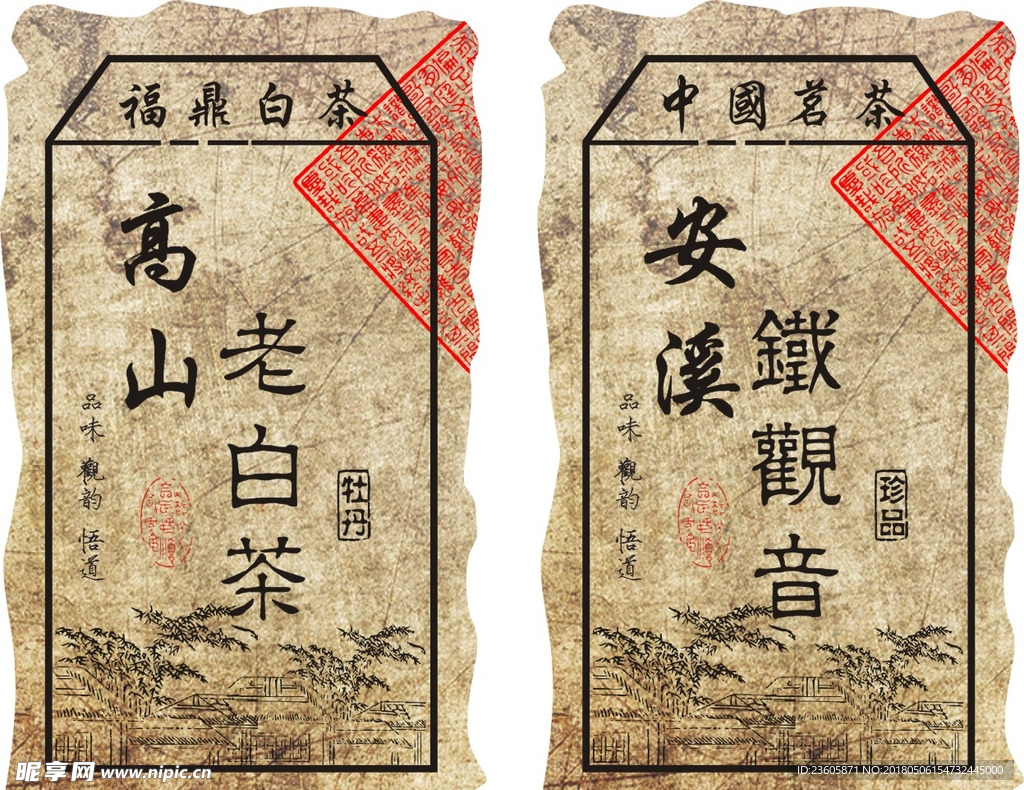 福鼎白茶
高山
老白茶
牡丹
品味 觀韵 悟道
中國茗茶
安溪
鐵觀音
珍品
品味 觀韵 悟道
昵享网 www.nipic.cn
ID:23605871 NO:20180506154732445000